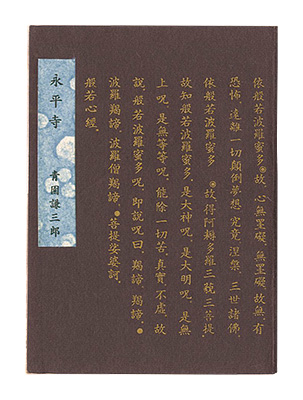 依般若波羅蜜多●故、心無罣礙、無罣礙故、無有
恐怖、遠離一切顛倒夢想、究竟涅槃、三世諸佛、
依般若波羅蜜多●故、得阿耨多羅三藐三菩提、
故知般若波羅蜜多、是大神呪、是大明呪、是無
上呪、是無等等呪、能除一切苦、真實不虛、故
説、般若波羅蜜多呪、即説呪曰、羯諦、羯諦、●
波羅羯諦、波羅僧羯諦、●菩提娑婆訶、
般若心經、
永平寺 青園謙三郎